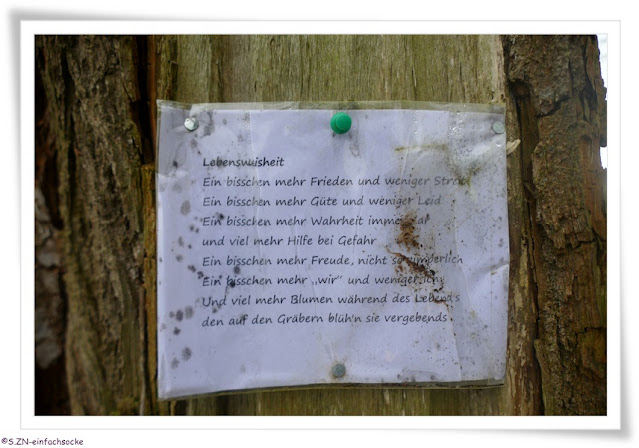 Lebensweisheit
Ein bisschen mehr Frieden und weniger
Ein bisschen mehr Güte und weniger Leid
Ein bisschen mehr Wahrheit
und viel mehr Hilfe bei Gefahr
Ein bisschen mehr Freude, nicht so
Ein bisschen mehr „wir" und weniger
Und viel mehr Blumen während des Leben's
den auf den Gräbern blüh'n sie vergebends
©S.ZN-einfachsocke